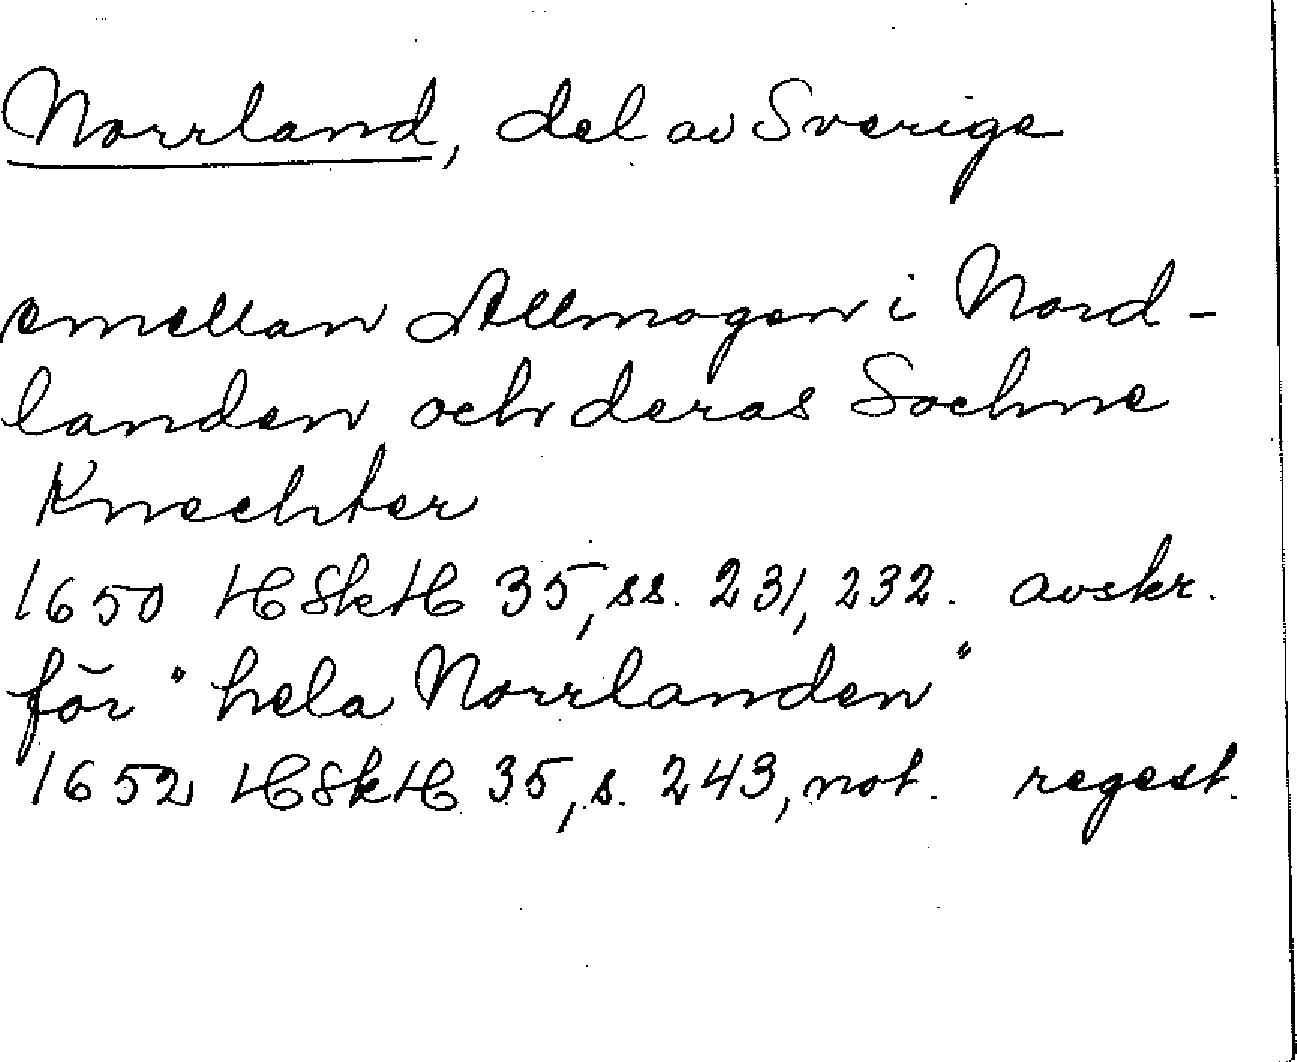 Norrland, del av Sverige
emellan Allmogen i Nord-
landen och deras Sochne
Knechter
1650 HSkH 35, ss. 231, 232. avskr.
för "hela Norrlanden"
1652 HSkH 35, s. 243, not. regest.